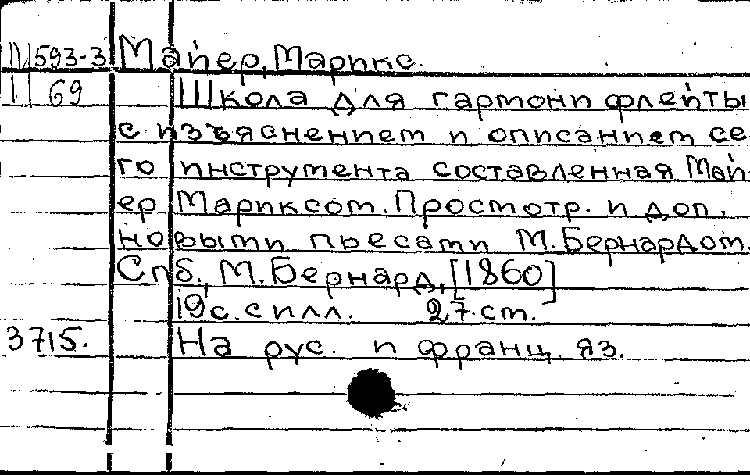 593-3 Майер, Марикс.
69 Школа для гармони флейты
с изъяснением и описанием се
го инструмента составленная Май-
ер Мариксом. Простотр. и доп.
новыми пьесами М. Бернардом.
Спб., М. Бернард, [1860]
19 с. с илл. 27 см.
3715. На рус. и франц. яз.